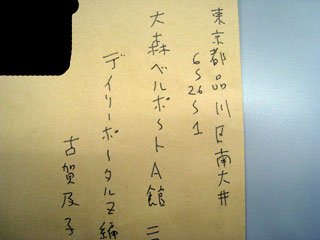 東京都品川区南大井
6S26S1
大森ベルポートA館 二
デイリーポータルZ編
古賀及子